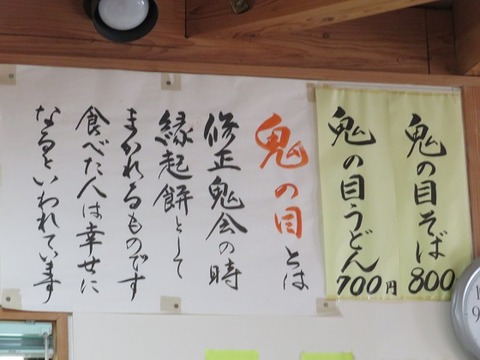 鬼の目そば
800
鬼の目うどん
700円
鬼の目とは
修正鬼会の時
縁起餅として
まかれるものです
食べた人は幸せに
なるといわれています